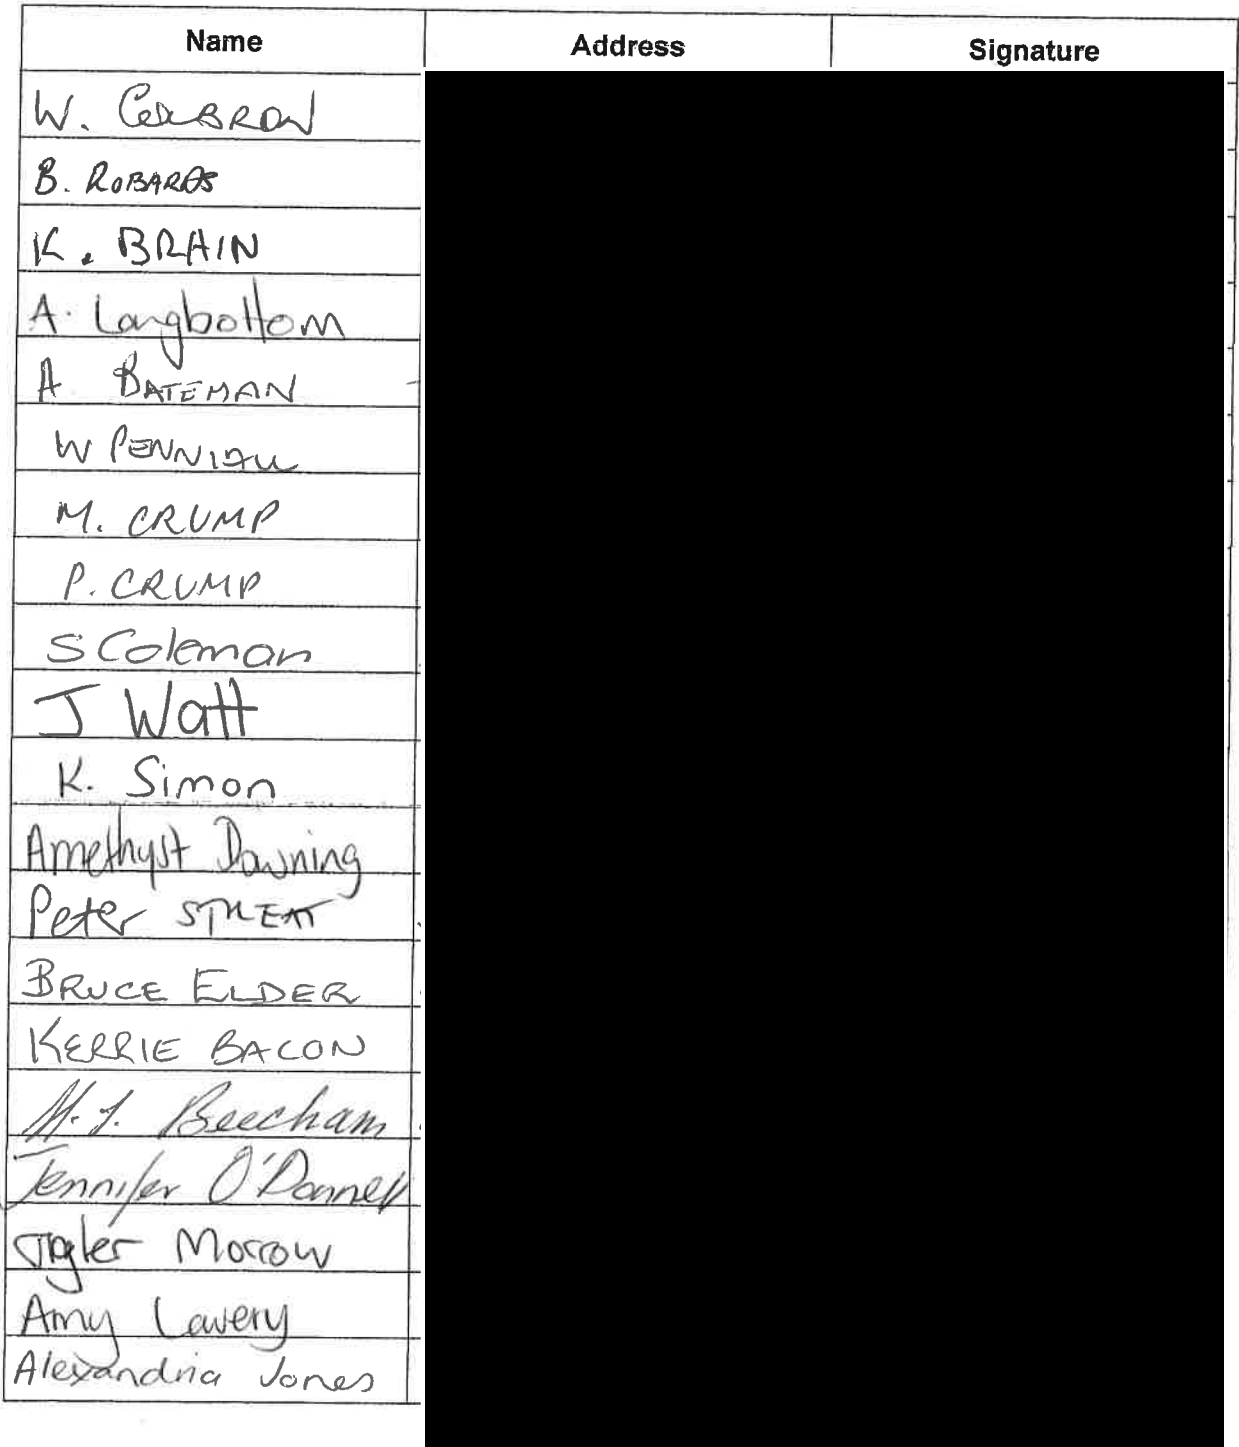 Name Address Signature
W.
B. ROBARDS
K. BRAIN
A. Longbottom
A BATEMAN
W
M. CRUMP
P. CRUMP
S Coleman
J Watt
K. Simon
Amethyst Downing
Peter STREAT
BRUCE ELDER
KERRIE BACON
M. J. Beecham
Jennifer O'Donnell
Morrow
Amy Lavery
Alexandria Jones